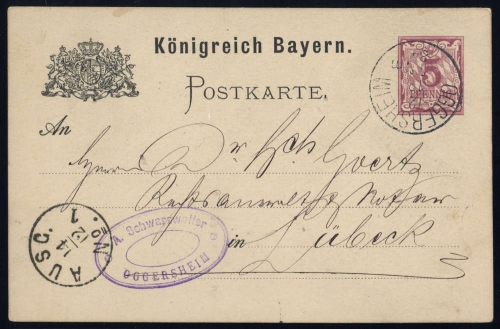 Königreich Bayern.
POSTKARTE.
5
PFENNIG
OGGERSHEIM
An
Herrn Dr Goertz
Rechtsanwalt & Notar
in Lübeck
A. Schwarzweller
OGGERSHEIM
AUSG. No. 1
14
12